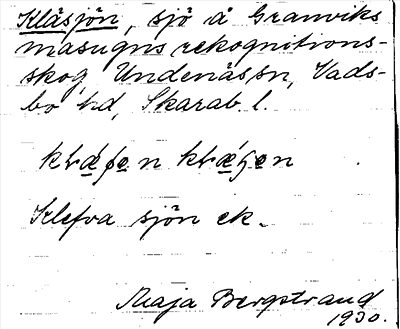 Klåsjön, sjö å Granviks
masugns rekognitions-
skog, Undenäs sn, Vads-
bo hd, Skarab. l.
Klefva sjön ek.
Maja Bergstrand
1930.